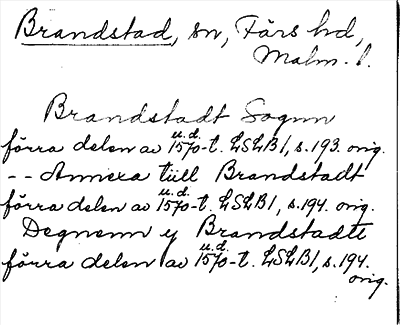 Brandstad, sn, Färs hd,
Malm. l.
Brandstadt Sognn
förra delen av u.d. 1570-t. LSLB1, s. 193. orig.
-- Annexa tiill Brandstadt
förra delen av u.d. 1570-t. LSLB1, s. 194. orig.
Degnenn y Brandstadte
förra delen av u.d. 1570-t. LSLB1, s. 194.
orig.